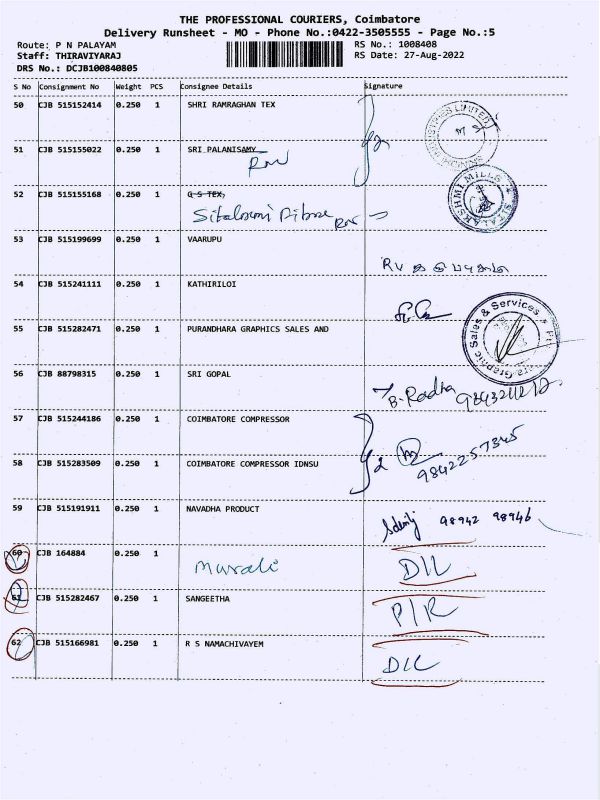 THE PROFESSIONAL COURIERS, Coimbatore
Delivery Runsheet - MO - Phone No.:0422-3505555 - Page No.:5
Route: P N PALAYAM
RS No.: 1008408
Staff: THIRAVIYARAJ
RS Date: 27-Aug-2022
DRS No.: DCJB100840805
S No Consignment No Weight PCS Consignee Details Signature
50 CJB 515152414 0.250 1 SHRI RAMRAGHAN TEX
51 CJB 515155022 0.250 1 SRI PALANISAMY
52 CJB 515155168 0.250 1 G S TEX,
SITALAKSHMI MILLS
53 CJB 515199699 0.250 1 VAARUPU
54 CJB 515241111 0.250 1 KATHIRILOI
55 CJB 515282471 0.250 1 PURANDHARA GRAPHICS SALES AND
Graphic Sales & Services
56 CJB 88798315 0.250 1 SRI GOPAL
B. Radha
57 CJB 515244186 0.250 1 COIMBATORE COMPRESSOR
2 9842257345
58 CJB 515283509 0.250 1 COIMBATORE COMPRESSOR IDNSU
59 CJB 515191911 0.250 1 NAVADHA PRODUCT
98942 98946
60 CJB 164884 0.250 1 Murali D/L
61 CJB 515282467 0.250 1 SANGEETHA P/R
62 CJB 515166981 0.250 1 R S NAMACHIVAYEM D/L